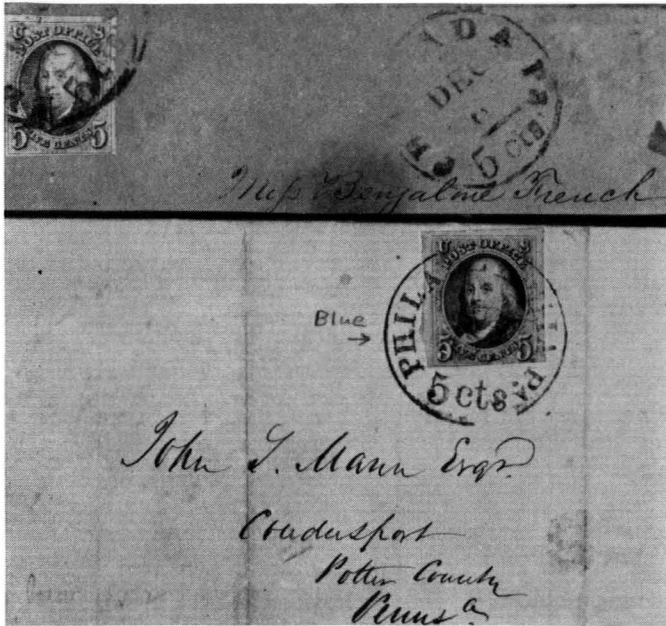 U S
POST OFFICE
5 FIVE CENTS 5
DA Pa.
DEC
5 cts
Miss French
U S
POST OFFICE
5 FIVE CENTS 5
Blue
→
PHILA Pa.
5 cts
John S. Mann Esqr.
Coudersport
Potter County
Penns a